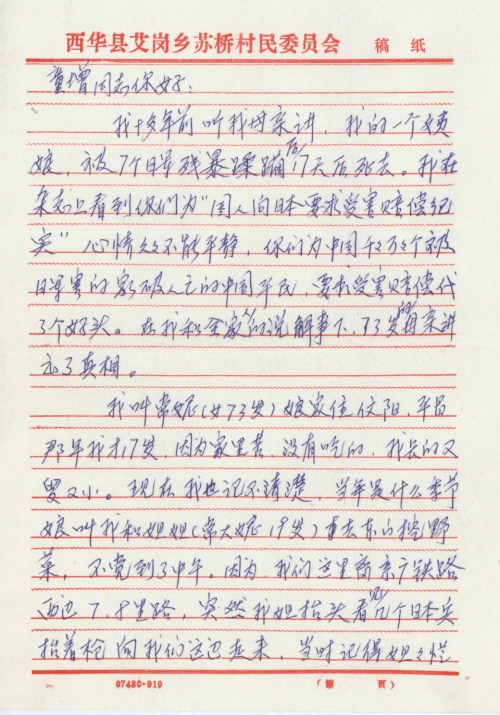 西华县艾岗乡苏桥村民委员会 稿纸
童增同志你好:
我十多年前听我母亲讲,我的一个姨
娘,被7个日军残暴蹂躏后17天后死去。我在
杂志上看到你们为"国人向日本要求受害赔偿纪
实"心情久久不能平静,你们为中国千千万万个被
日军害的家破人亡的中国平民,要求受害赔偿代
了个好头。在我和全家人的说解事下,73岁的母亲讲
出了真相。
我叫常妮(女73岁)娘家住信阳,平昌
那年我才17岁,因为家里苦,没有吃的,我长的又
瘦又小。现在我也记不清楚,当年是什么季节
娘叫我和姐姐(常大妮19岁)去东的挖野
菜,不觉到了中午。因为,我们这里离京广铁路
西边7.8里路,突然我姐抬头看见几个日本兵
抬着枪向我们这边走来,当时记得姐姐忙
07480·919 (第 页)